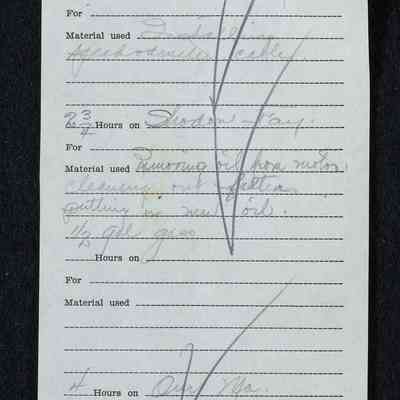 For
Material used Installing
speedometer cable
2 3/4 Hours on
For
Material used Removing oil from motor
cleaning out filter
putting in new oil.
1/2 gal gas
Hours on
For
Material used
4 Hours on Our